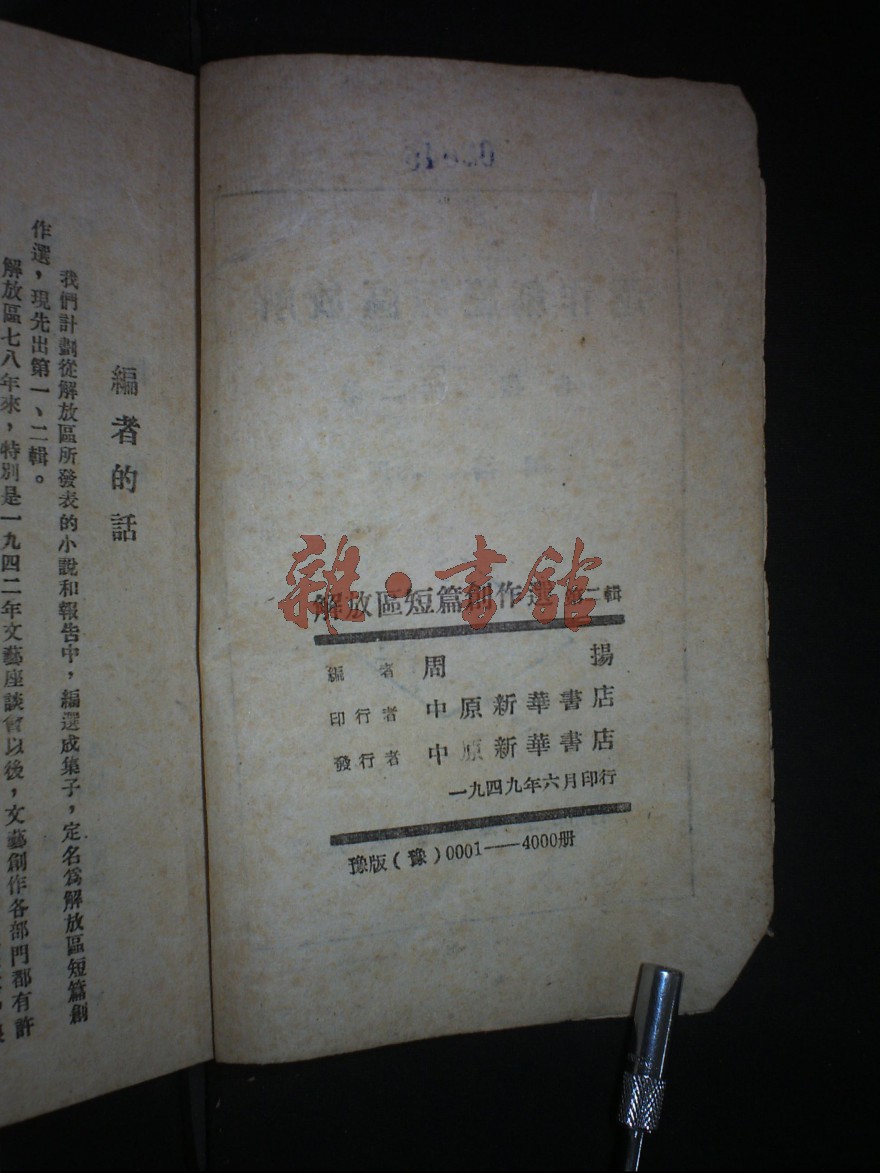 編者的話
我們計劃從解放區所發表的小說和報告中，編選成集子，定名爲解放區短篇創
作選，現先出第一、二輯。
解放區七八年來，特別是一九四二年文藝座談會以後，文藝創作各部門都有許
雜·書館
解放區短篇創作選 第二輯
編者 周揚
印行者 中原新華書店
發行者 中原新華書店
一九四九年六月印行
豫版（豫）0001——4000册